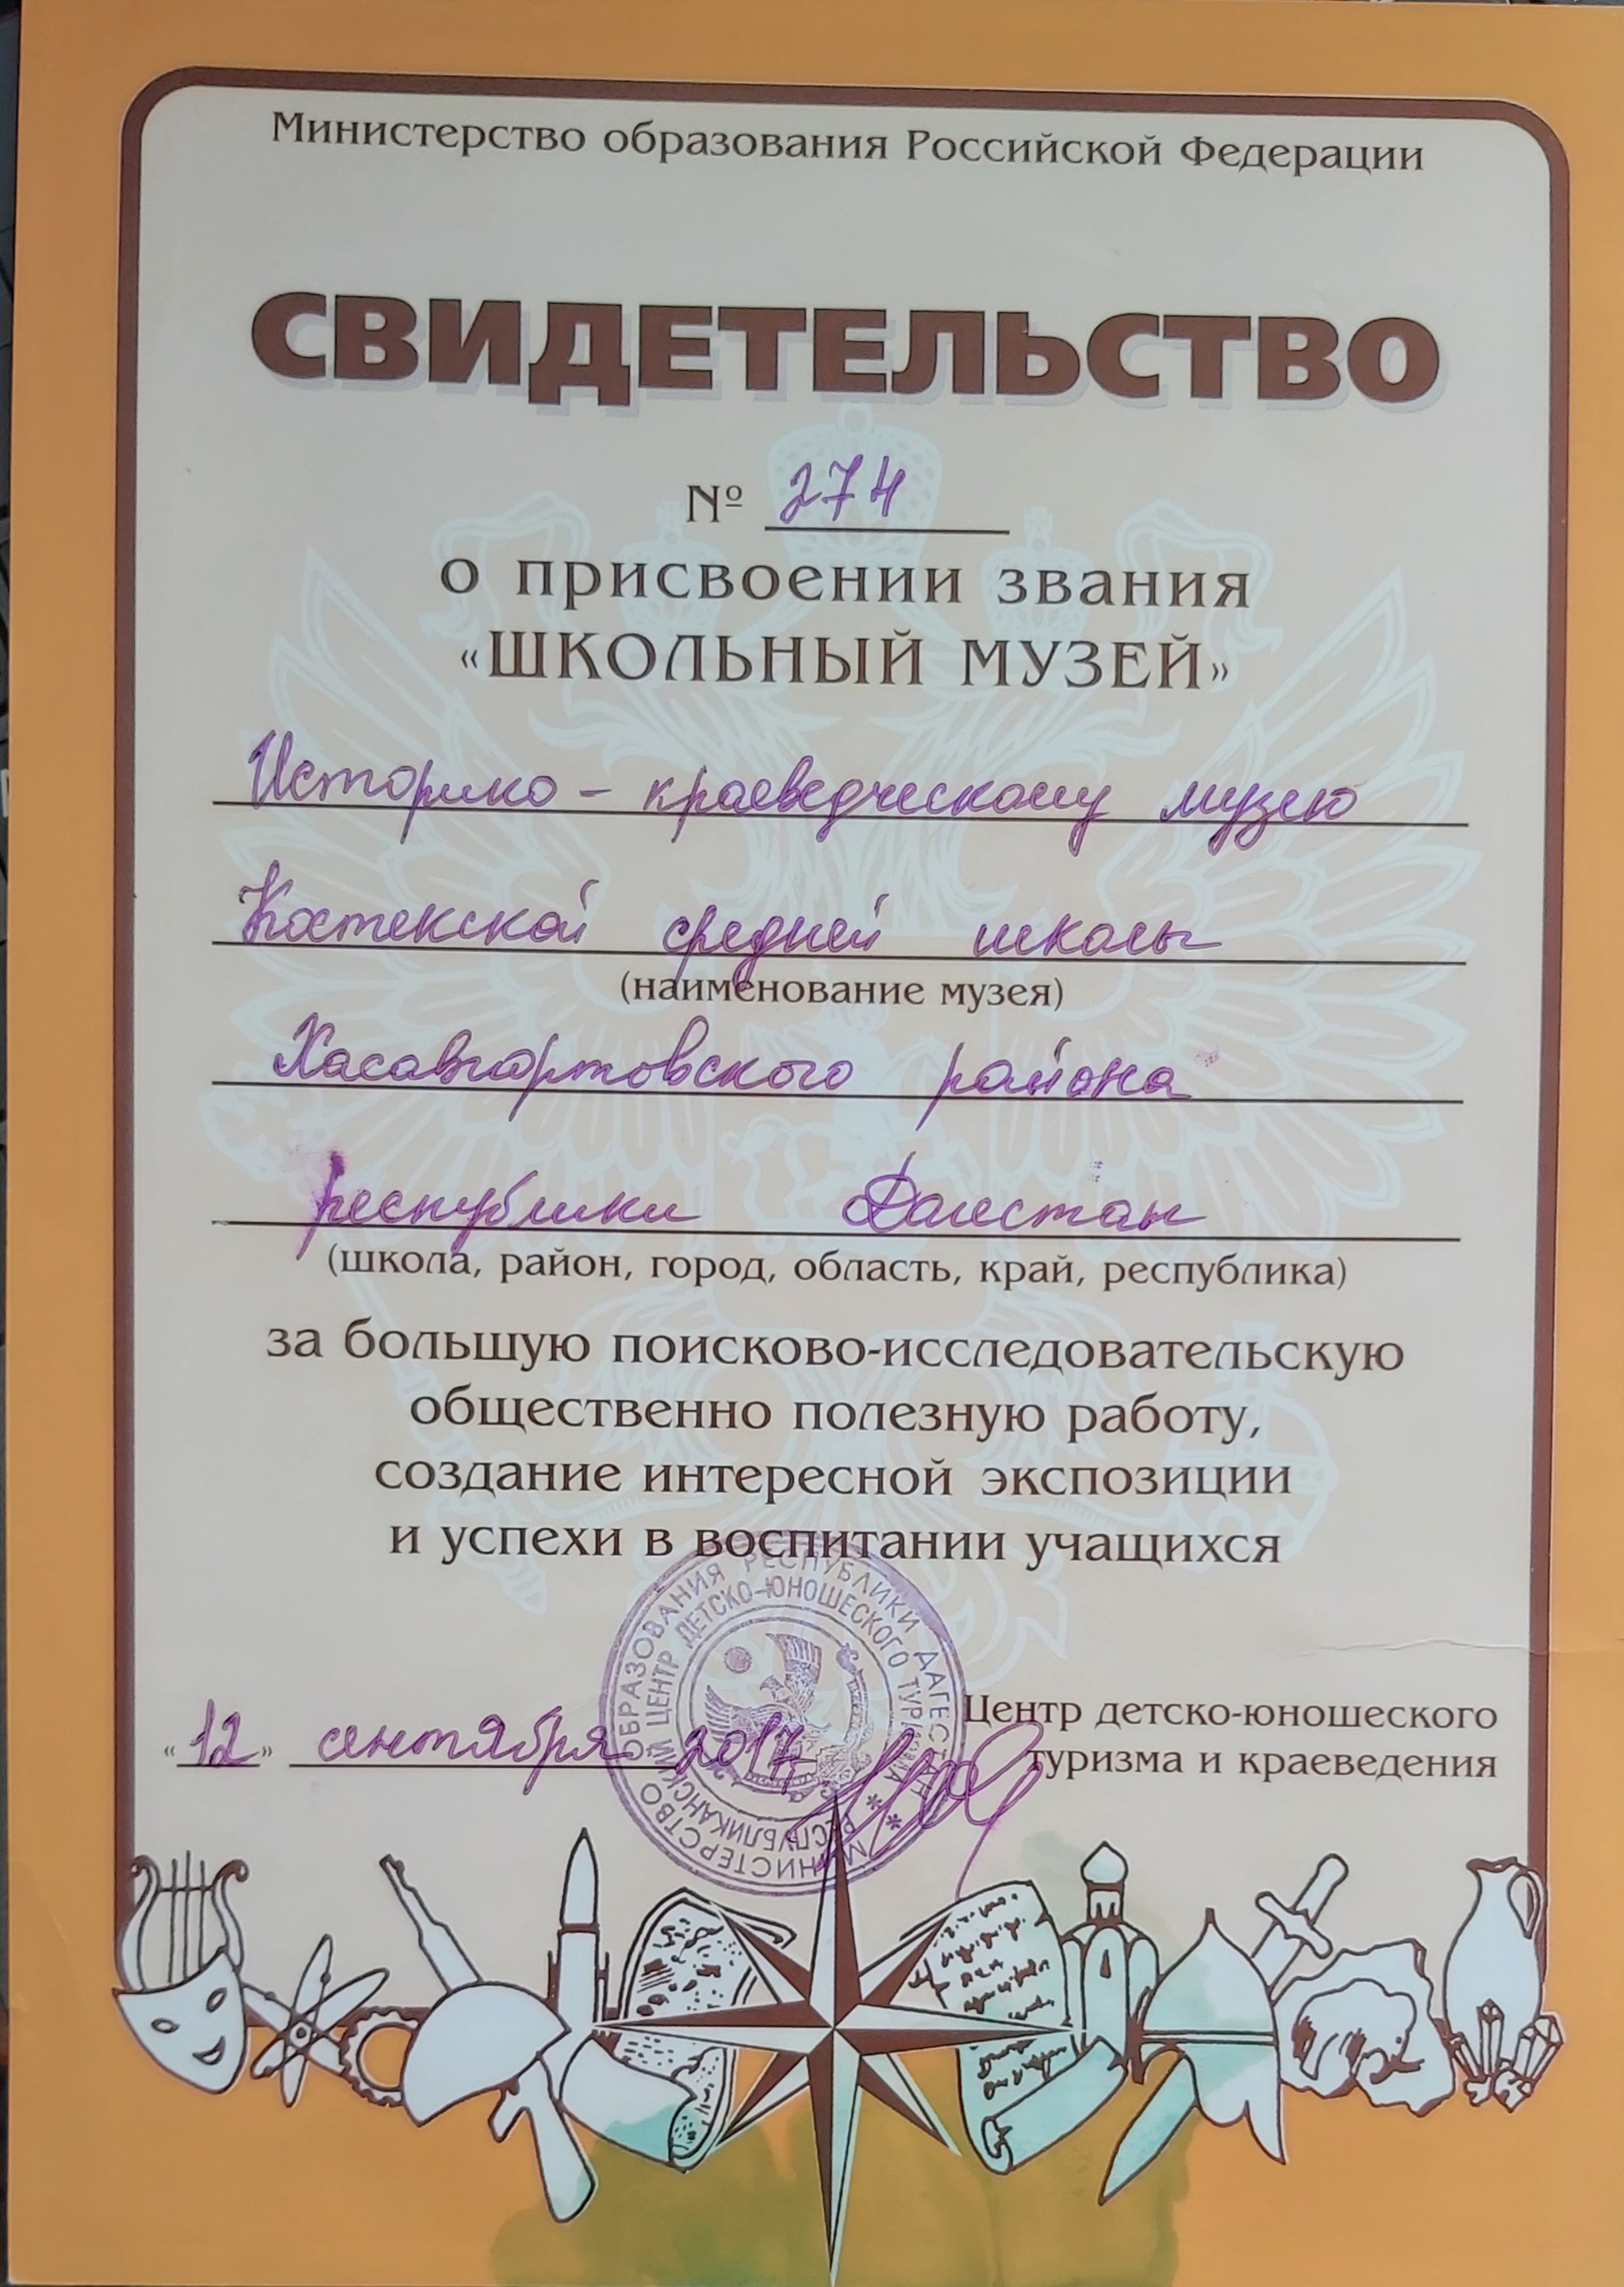 Министерство образования Российской Федерации
СВИДЕТЕЛЬСТВО
№ 274
о присвоении звания
«ШКОЛЬНЫЙ МУЗЕЙ»
Историко-краеведческому музею
Костекской средней школы
(наименование музея)
Хасавюртовского района
республики Дагестан
(школа, район, город, область, край, республика)
за большую поисково-исследовательскую
общественно полезную работу,
создание интересной экспозиции
и успехи в воспитании учащихся
МИНИСТЕРСТВО ОБРАЗОВАНИЯ РЕСПУБЛИКИ ДАГЕСТАН
РЕСПУБЛИКАНСКИЙ ЦЕНТР ДЕТСКО-ЮНОШЕСКОГО ТУРИЗМА
Центр детско-юношеского
туризма и краеведения
«12» сентября 2017